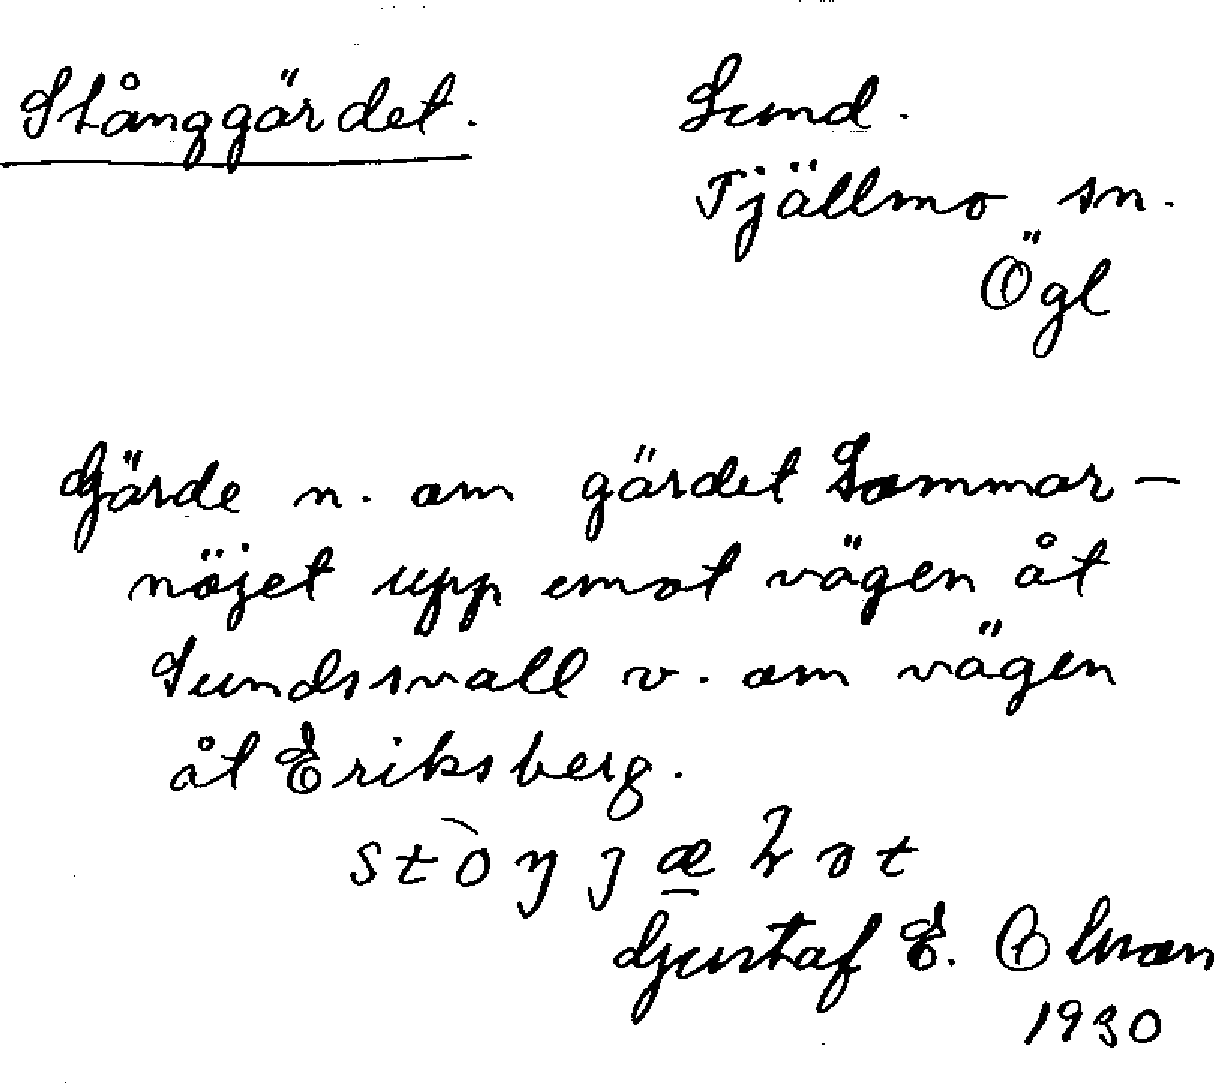 Stånggärdet.
Lund.
Tjällmo sn.
Ögl
Gärde n. om gärdet Sommar-
nöjet upp emot vägen åt
Sundssvall v. om vägen
åt Eriksberg.
Gustaf E. Olsson
1930